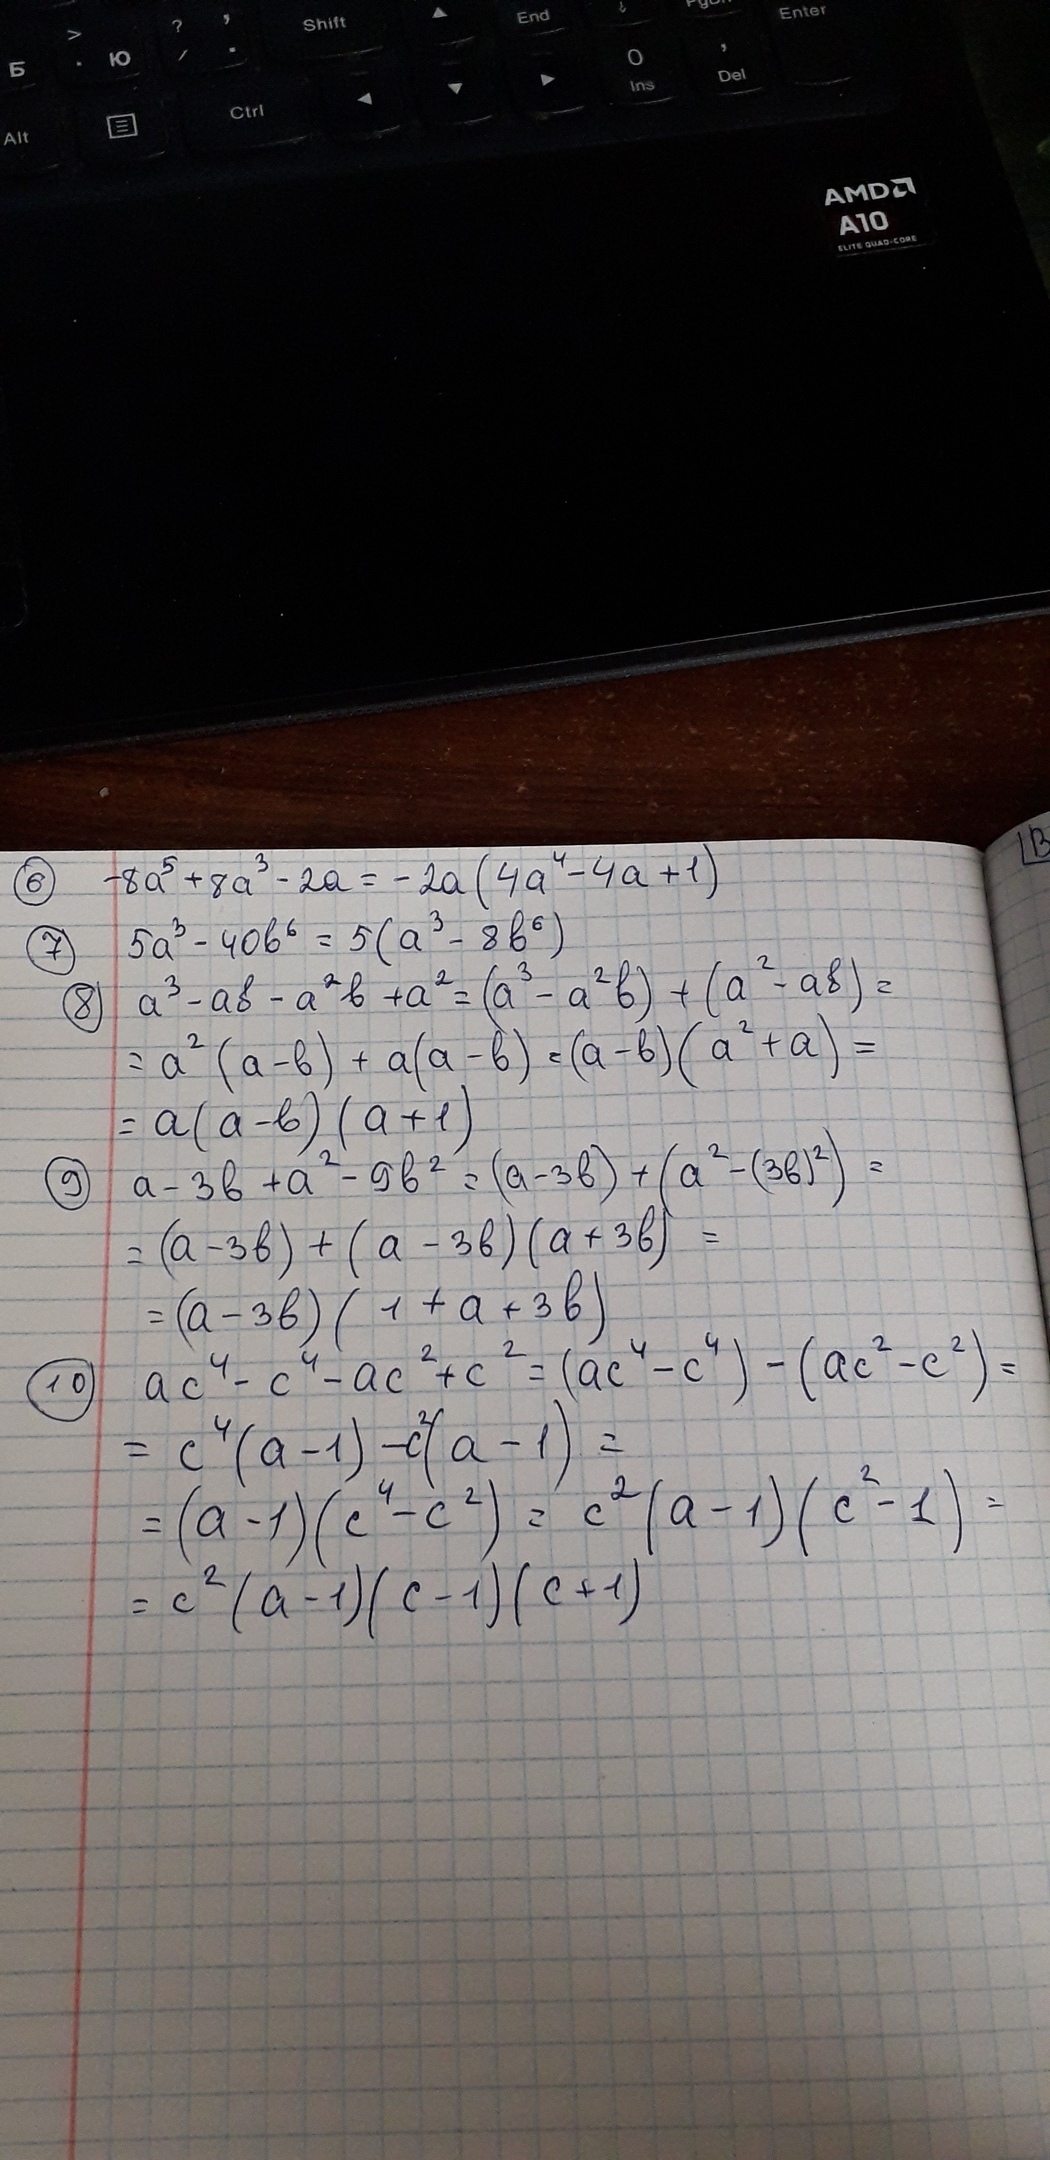 > ? , Shift End ↓ PgDn Enter
Б . Ю / . 0 ,
Ins Del
Alt Ctrl
AMD
A10
ELITE QUAD-CORE
В
⑥ -8a⁵+8a³-2a=-2a(4a⁴-4a+1)
⑦ 5a³-40b⁶=5(a³-8b⁶)
⑧ a³-ab-a²b+a²=(a³-a²b)+(a²-ab)=
=a²(a-b)+a(a-b)=(a-b)(a²+a)=
=a(a-b)(a+1)
⑨ a-3b+a²-9b²=(a-3b)+(a²-(3b)²)=
=(a-3b)+(a-3b)(a+3b)=
=(a-3b)(1+a+3b)
⑩ ac⁴-c⁴-ac²+c²=(ac⁴-c⁴)-(ac²-c²)=
=c⁴(a-1)-c²(a-1)=
=(a-1)(c⁴-c²)=c²(a-1)(c²-1)=
=c²(a-1)(c-1)(c+1)